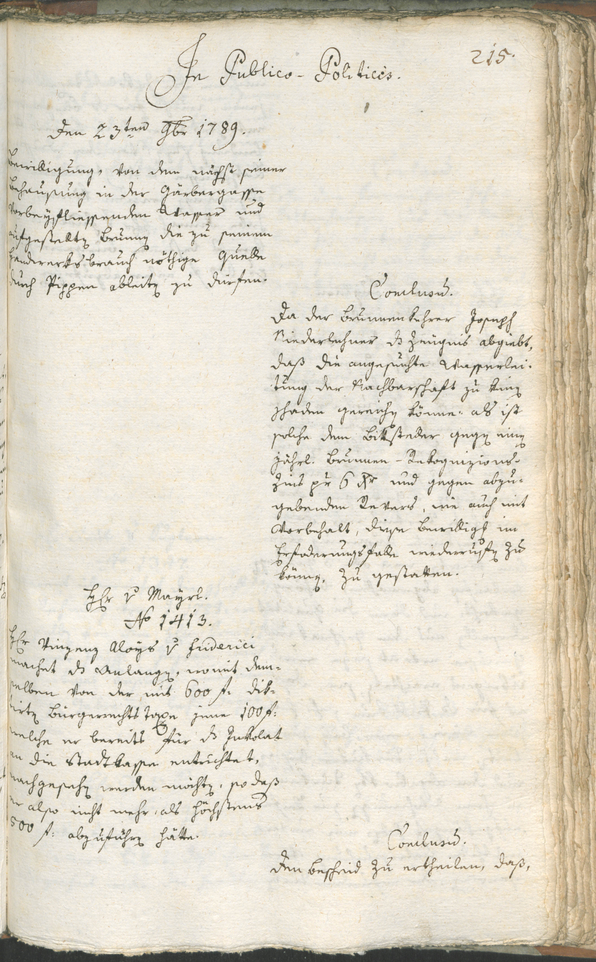 215.
In Publico-Politicis.
Den 23ten 9br 1789.
bewilligung, von dem nächst seiner
behausung in der Gärbergasse
vorbeyfliessenden Wasser und
aufgestelltn Brunn die zu seinem
Handwerksbrauch nöthige Quelle
durch Pippen ableitn zu dürfen.
Conclusum.
Da der Brunnenkehrer Joseph
Niederlechner ds Zeugnis abgiebt,
daß die angesuchte Wasserlei-
tung der Nachbarschaft zu kein
schaden gereichn könne: als ist
solche dem Bittsteller gegen einn
jährl. Brunnen-Rekognizions-
Zins pr 6 xr und gegen abzu-
gebenden Revers, wie auch mit
Vorbehalt, diese Bewilligg im
Erfoderungsfalle wiederrufn zu
könnn, zu gestatten.
Hr v Mayrl.
No 1413.
Hr Vinzenz Aloys v Friderici
machet ds Anlangn, womit dem-
selben von der mit 600 f. dik-
tirtn Bürgerrechts Taxe jene 100 f.
welche er bereits für ds Inkolat
an die Stadtkasse entrichtet,
nachgesehn werden möchtn, so daß
er also nicht mehr als höchstens
500 f. abzuführn hätte.
Conclusum.
Den Bescheid zu ertheilen, daß,